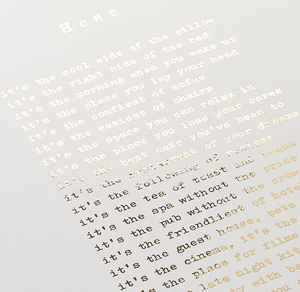 HOME
it's the cool side of the pillow
it's the right side of the bed
it's the morning when you wake up
it's the place you lay your head
it's the comfiest of sofas
it's the easiest of chairs
it's the space you can relax in
it's the place you lose your cares
it's the best cafe you've been to
it's the of your dreams
it's the following of
it's the tea of trust and
it's the spa without the price
it's the pub without the crow
it's the friendliest of hote
it's the guest house, pets
it's the cinema, it's the
it's the place for games
late night ki
with be